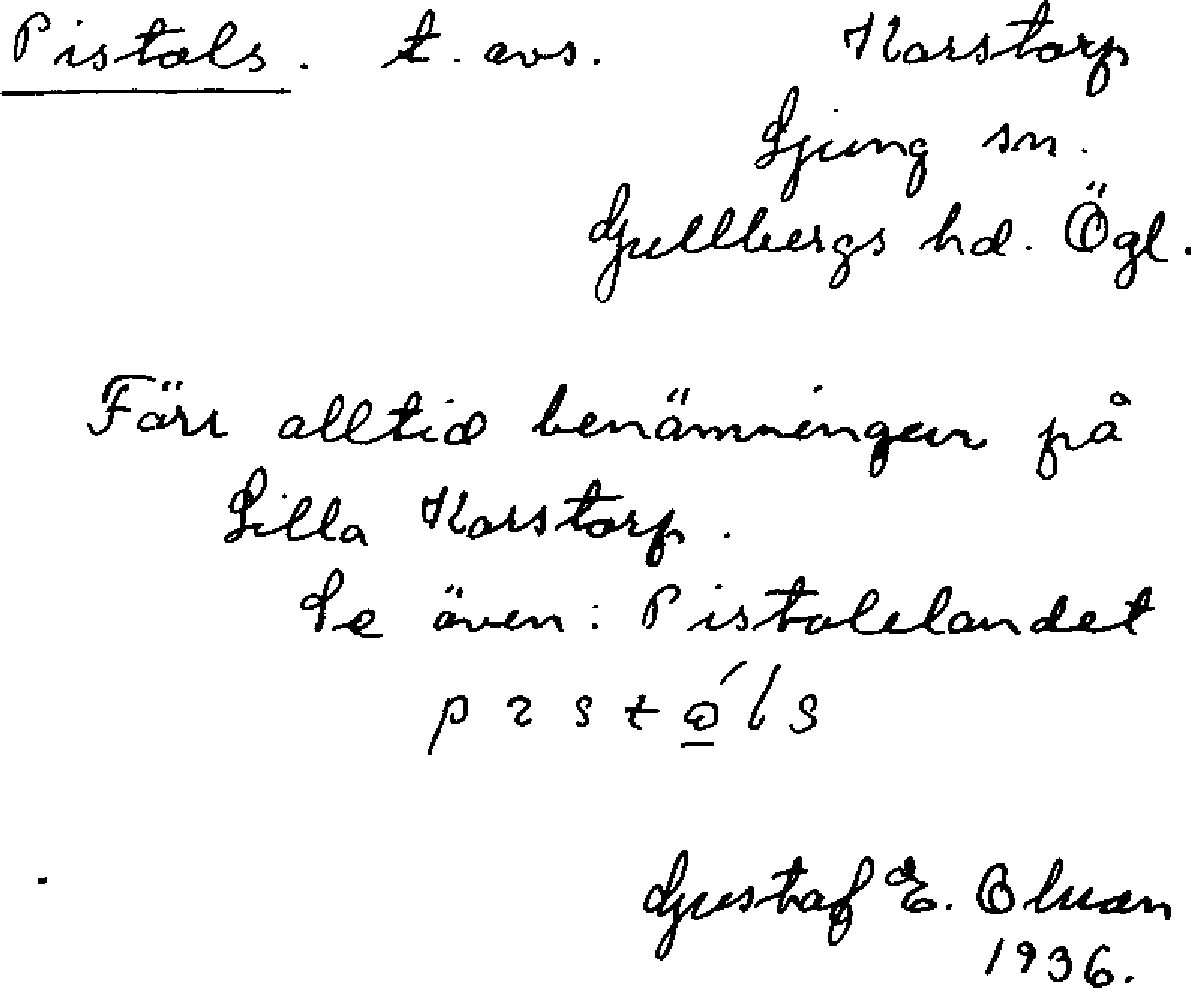 Pistols. t. avs. Karstorp
Ljung sn.
Gullbergs hd. Ögl.
Förr alltid benämningen på
Lilla Karstorp.
Se även: Pistolelandet
Gustaf E. Olson
1936.